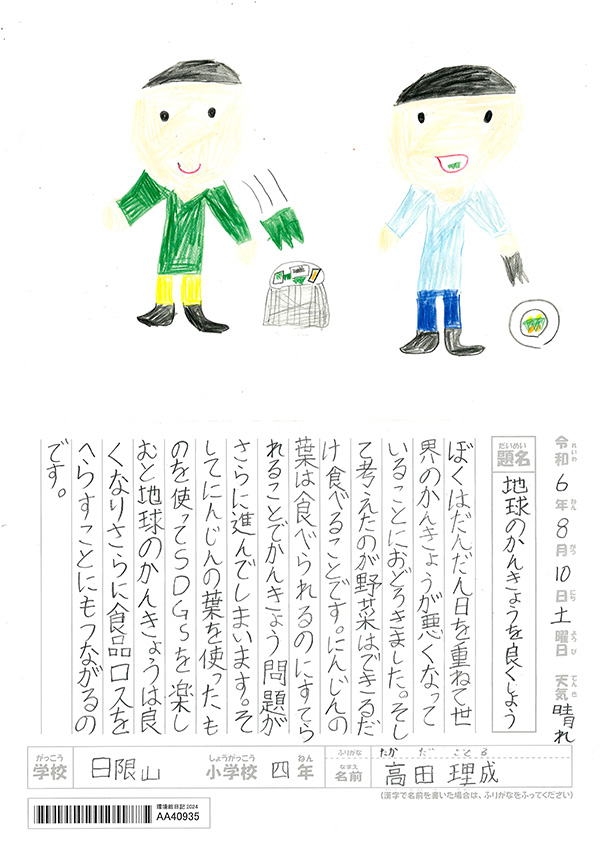 令和6年8月10日土曜日 天気晴れ
れいわ ねん がつ にち ようび てんき
だいめい
題名 地球のかんきょうを良くしよう
ぼくはだんだん日を重ねて世
界のかんきょうが悪くなって
いることにおどろきました。そし
て考えたのが野菜はできるだ
け食べることです。にんじんの
葉は食べられるのにすてら
れることでかんきょう問題が
さらに進んでしまいます。そ
してにんじんの葉を使ったも
のを使ってSDGsを楽し
むと地球のかんきょうは良
くなりさらに食品ロスを
へらすことにもつながるの
です。
がっこう しょうがっこう ねん
学校 日限山 小学校 四年
ふりがな たかだ ことる
なまえ
名前 高田 理成
(漢字で名前を書いた場合は、ふりがなをふってください)
環境絵日記2024
AA40935